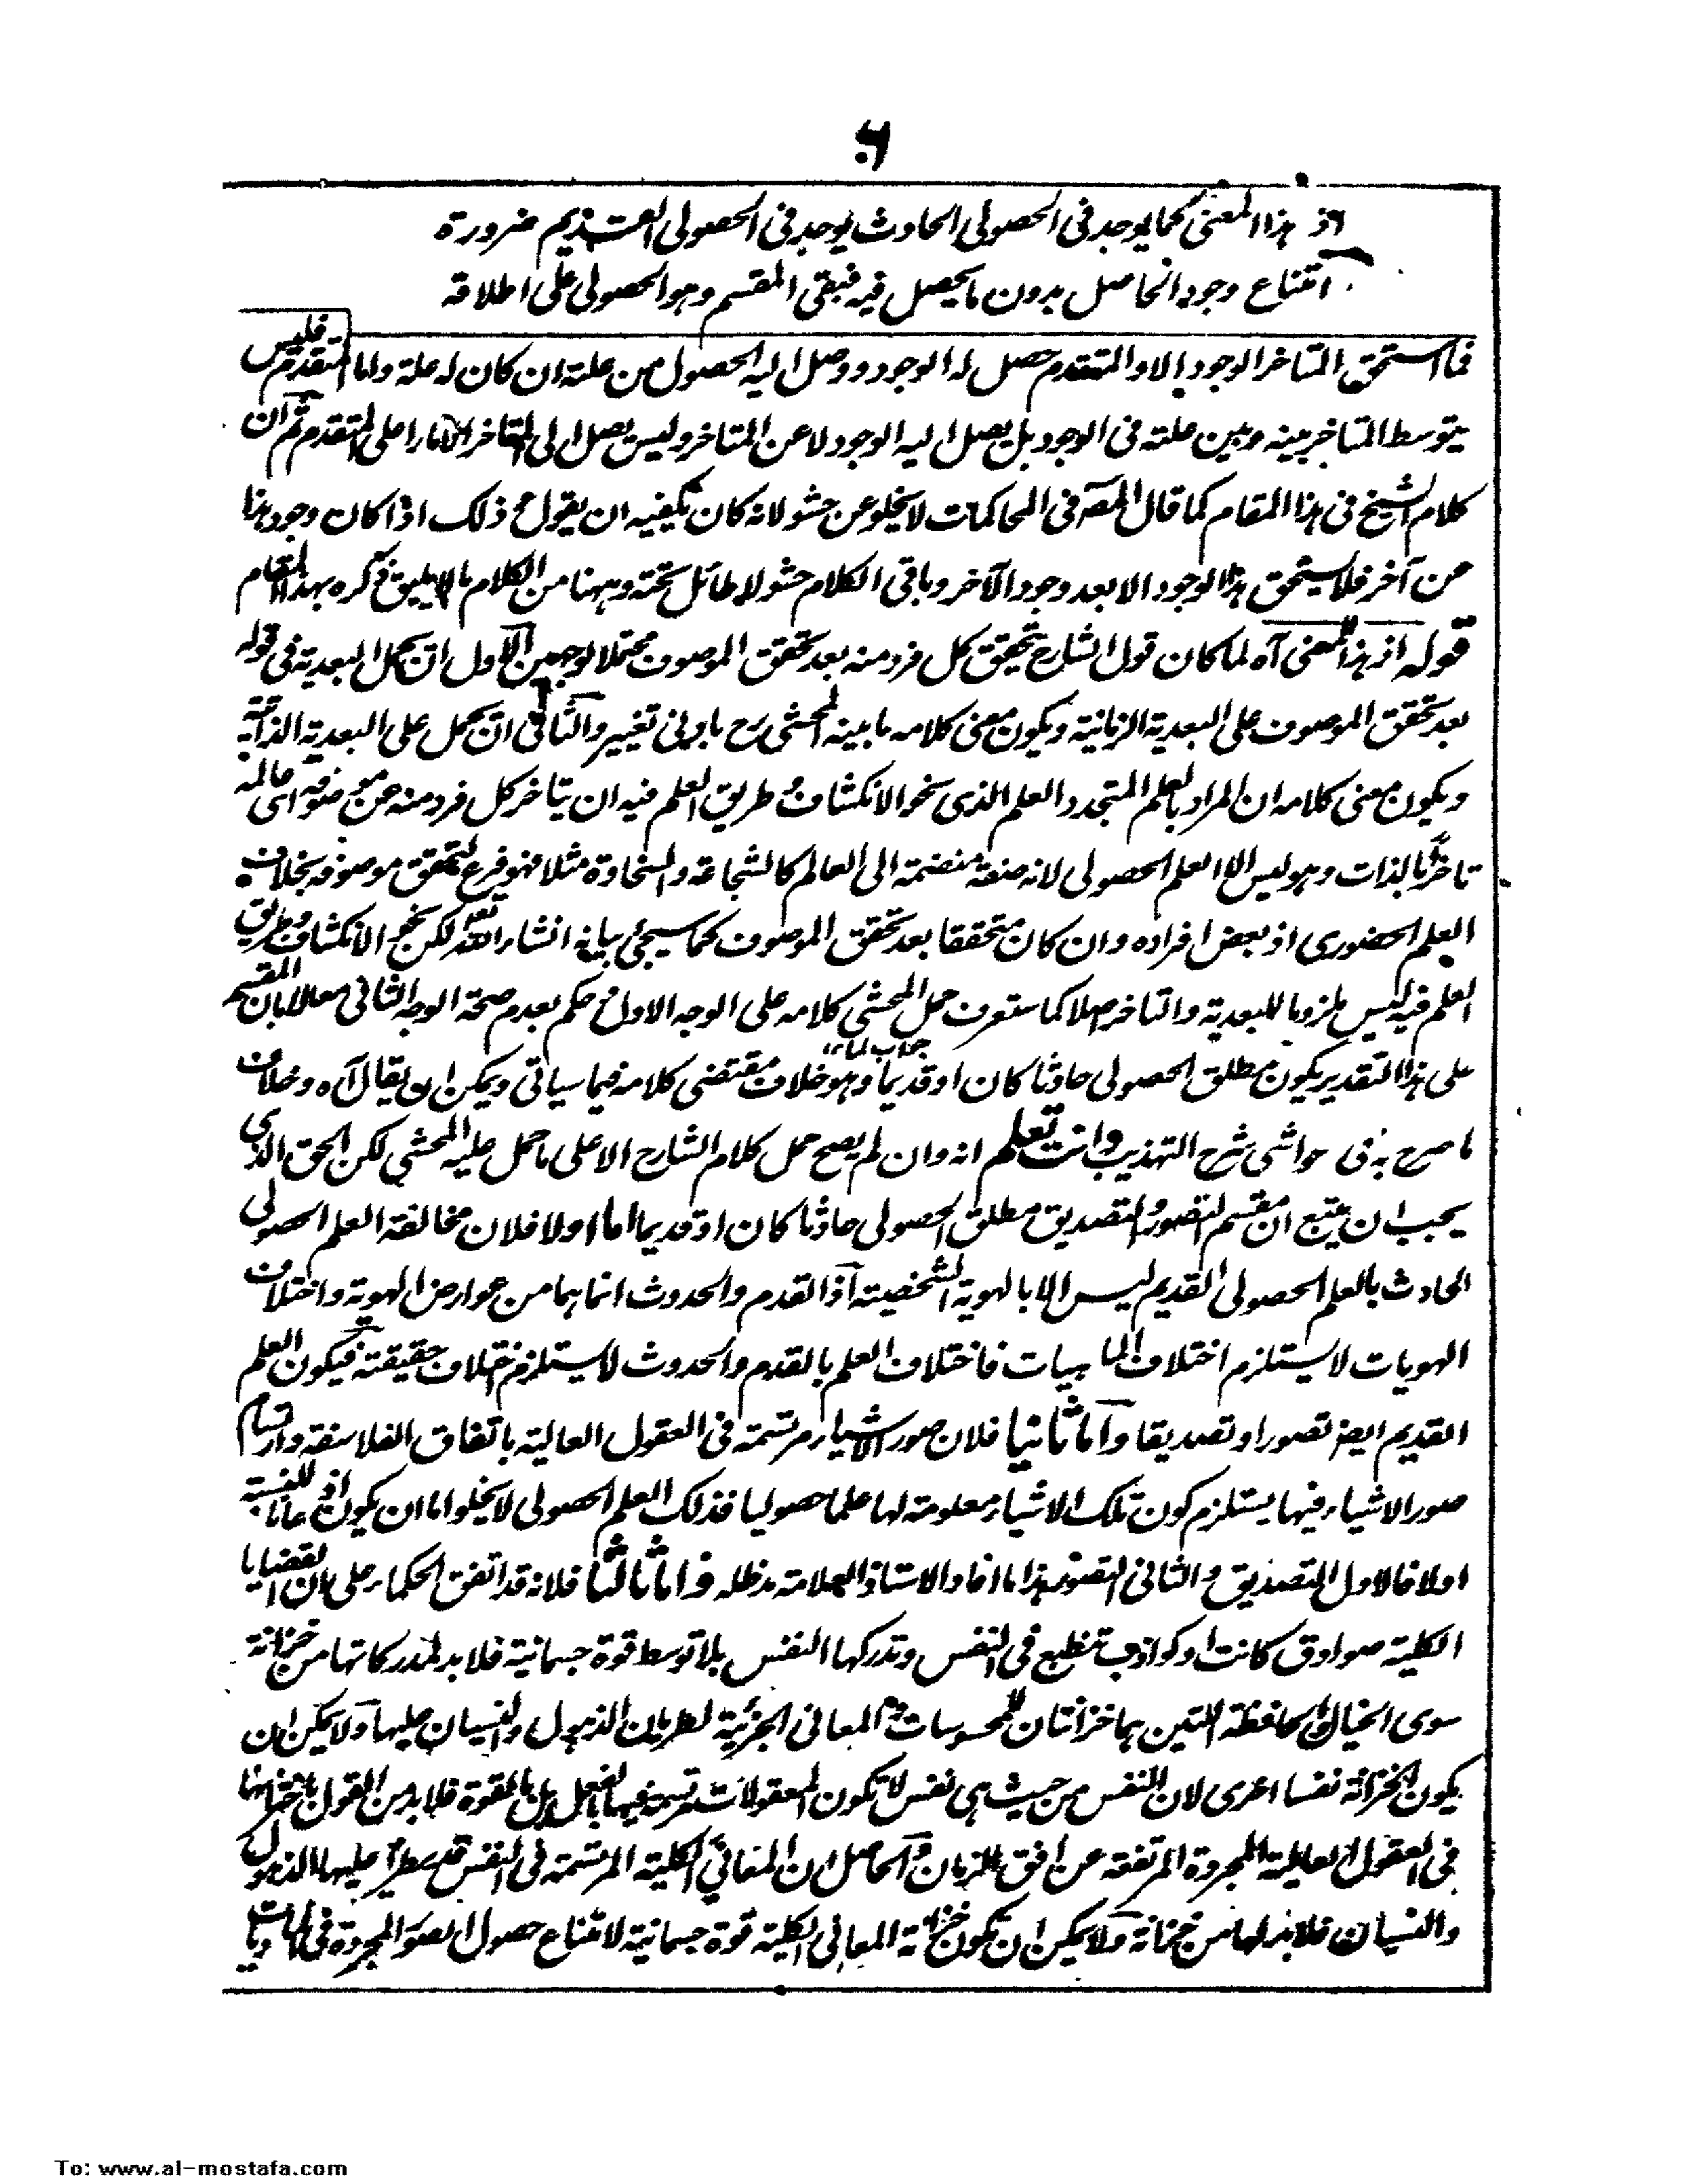 ۶
اذ هذا المعنى كما يوجد فى الحصولى الحادث يوجد فى الحصولى القديم ضرورة
امتناع وجود الحاصل بدون ما يحصل فيه فبقى المقسم وهو الحصولى على اطلاقه
فما استحق المتاخر الوجود الا والمتقدم حصل له الوجود ووصل اليه الحصول من علته ان كان له علة واما المتقدم فليس
يتوسط المتاخر بينه وبين علته فى الوجود بل يصل اليه الوجود لا عن المتاخر وليس يصل الى المتاخر الا مارا على المتقدم ثم ان
كلام الشيخ فى هذا المقام كما قال المصه فى المحاكمات لا يخلو عن حشو لانه كان يكفيه ان يقول ذلك اذا كان وجود هذا
عن آخر فلا يستحق هذا الوجود الا بعد وجود الآخر وباقى الكلام حشو لا طائل تحته وههنا من الكلام ما لا يليق ذكره بهذا المقام
قوله اذ هذا المعنى آه لما كان قول الشارح يتحقق كل فرد منه بعد تحقق الموصوف محتملا لوجهين الاول ان يحمل البعدية فى قوله
بعد تحقق الموصوف على البعدية الزمانية ويكون معنى كلامه ما بينه المحشى رح بادنى تغيير والثانى ان يحمل على البعدية الذاتية
ويكون معنى كلامه ان المراد بالعلم المتجدد العلم الذى نحو الانكشاف وطريق العلم فيه ان يتاخر كل فرد منه عن موصوفه اى عالمه
تاخرا بالذات وهو ليس الا العلم الحصولى لانه صفة منضمة الى العالم كالشجاعة والسخاوة مثلا فهو فرع لتحقق موصوفه بخلاف
العلم الحضورى اذ بعض افراده وان كان متحققا بعد تحقق الموصوف كما سيجئ بيانه انشاء الله تعم لكن نحو الانكشاف وطريق
العلم فيه ليس ملزوما للبعدية والتاخر اصلا كما ستعرف حمل المحشى كلامه على الوجه الاول ثم حكم بعدم صحة الوجه الثانى معللا بان المقسم
على هذا التقدير يكون مطلق الحصولى حادثا كان او قديما وهو خلاف مقتضى كلامه فيما سياتى ويمكن ان يقال آه وخلاف
جواب لما ١٢
ما صرح به فى حواشى شرح التهذيب وانت تعلم انه وان لم يصح حمل كلام الشارح الا على ما حمل عليه المحشى لكن الحق الذى
يجب ان يتبع ان مقسم التصور والتصديق مطلق الحصولى حادثا كان او قديما اما اولا فلان مخالفة العلم الحصولى
الحادث بالعلم الحصولى القديم ليس الا بالهوية الشخصية اذ القدم والحدوث انما هما من عوارض الهوية واختلاف
الهويات لا يستلزم اختلاف الماهيات فاختلاف العلم بالقدم والحدوث لا يستلزم اختلاف حقيقته فيكون العلم
القديم ايضا تصورا وتصديقا واما ثانيا فلان صور الاشياء مرتسمة فى العقول العالية باتفاق الفلاسفة وارتسام
صور الاشياء فيها يستلزم كون تلك الاشياء معلومة لها علما حصوليا فذلك العلم الحصولى لا يخلو اما ان يكون اذعانا للنسبة
اولا فالاول التصديق والثانى التصور هذا ما افاد الاستاذ العلامة مد ظله واما ثالثا فلانه قد اتفق الحكماء على ان القضايا
الكلية صوادق كانت او كواذب تنطبع فى النفس وتدركها النفس بلا توسط قوة جسمانية فلا بد لمدركاتها من خزانة
سوى الخيال والحافظة اللتين هما خزانتان للمحسوسات والمعانى الجزئية لطريان الذهول والنسيان عليها ولا يمكن ان
يكون الخزانة نفسا اخرى لان النفس من حيث هى نفس لا تكون المعقولات مرتسمة فيها بالفعل بل بالقوة فلا بد من القول بانخزانها
فى العقول العالية المجردة المرتفعة عن افق الزمان والحاصل ان المعانى الكلية المرتسمة فى النفس قد يطرأ عليها الذهول
والنسيان فلا بد لها من خزانة ولا يمكن ان تكون خزانة المعانى الكلية قوة جسمانية لامتناع حصول الصور المجردة فى الماديات
To: www.al-mostafa.com